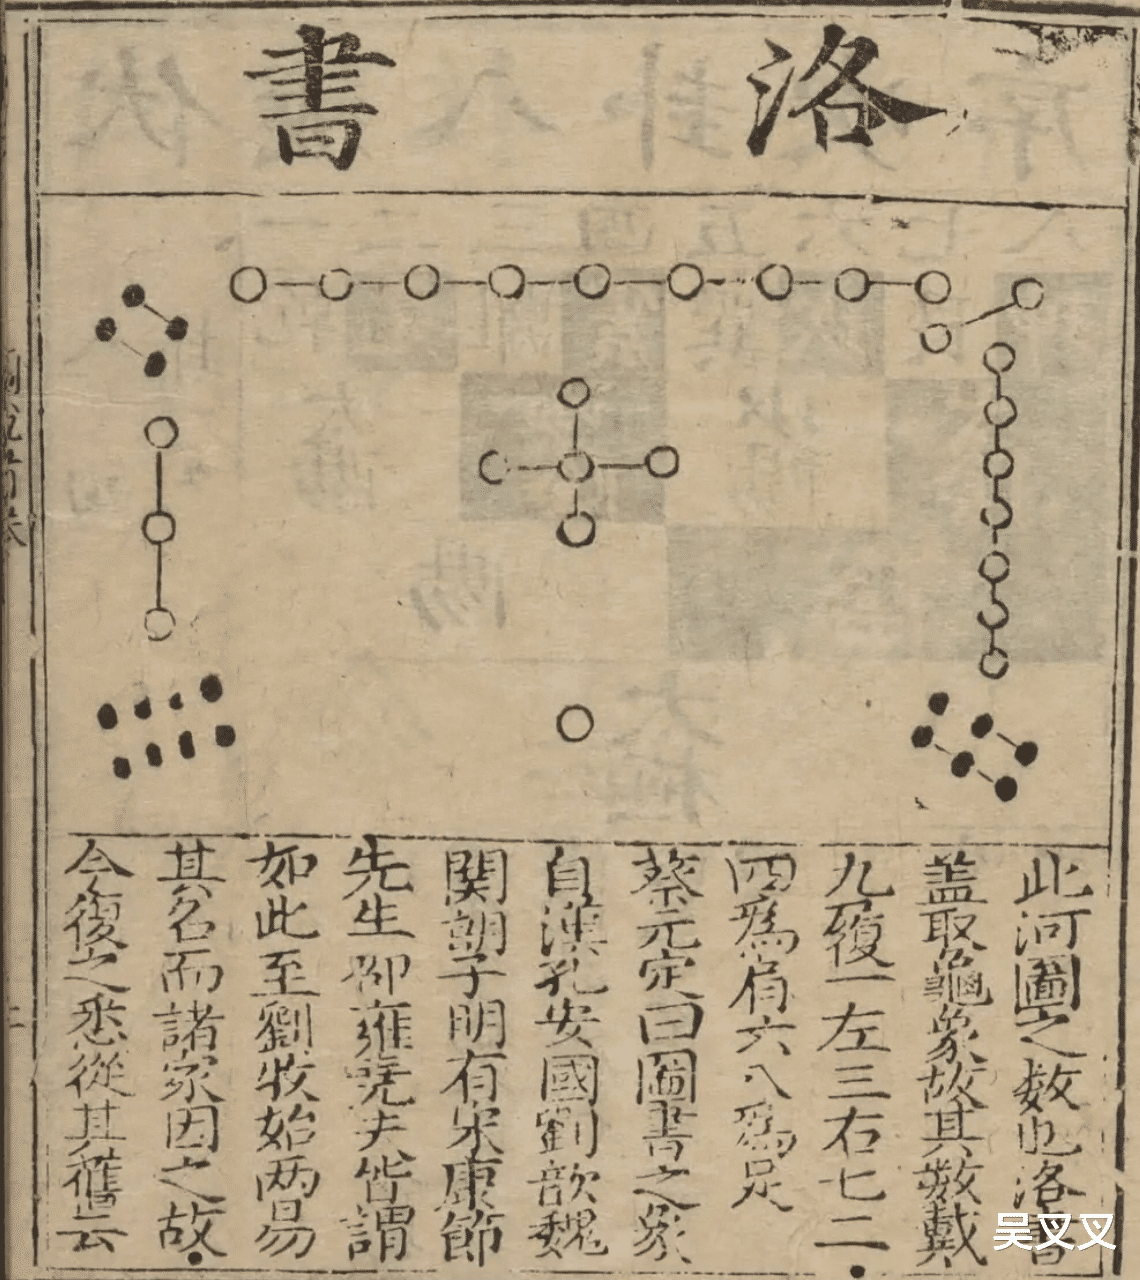 洛書
此河圖之数也洛書
蓋取龜象故其数戴
九履一左三右七二
四爲肩六八爲足
蔡元定曰圖書之象
自漢孔安國劉歆魏
関朗子明有宋康節
先生邵雍堯夫皆謂
如此至劉牧始两易
其名而諸家因之故
今復之悉從其舊云
吴叉叉